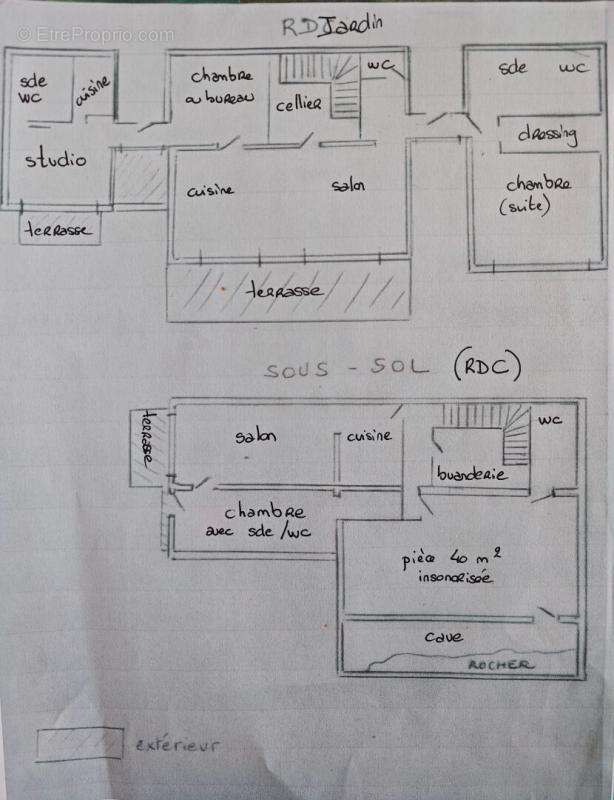 © EtreProprio.com
RDJardin
sde
wc
cuisine
studio
terrasse
chambre
ou bureau
cellier
wc
cuisine
salon
terrasse
sde wc
dressing
chambre
(suite)
SOUS - SOL (RDC)
terrasse
salon
cuisine
wc
buanderie
chambre
avec sde/wc
pièce 40 m²
insonorisée
cave
ROCHER
extérieur